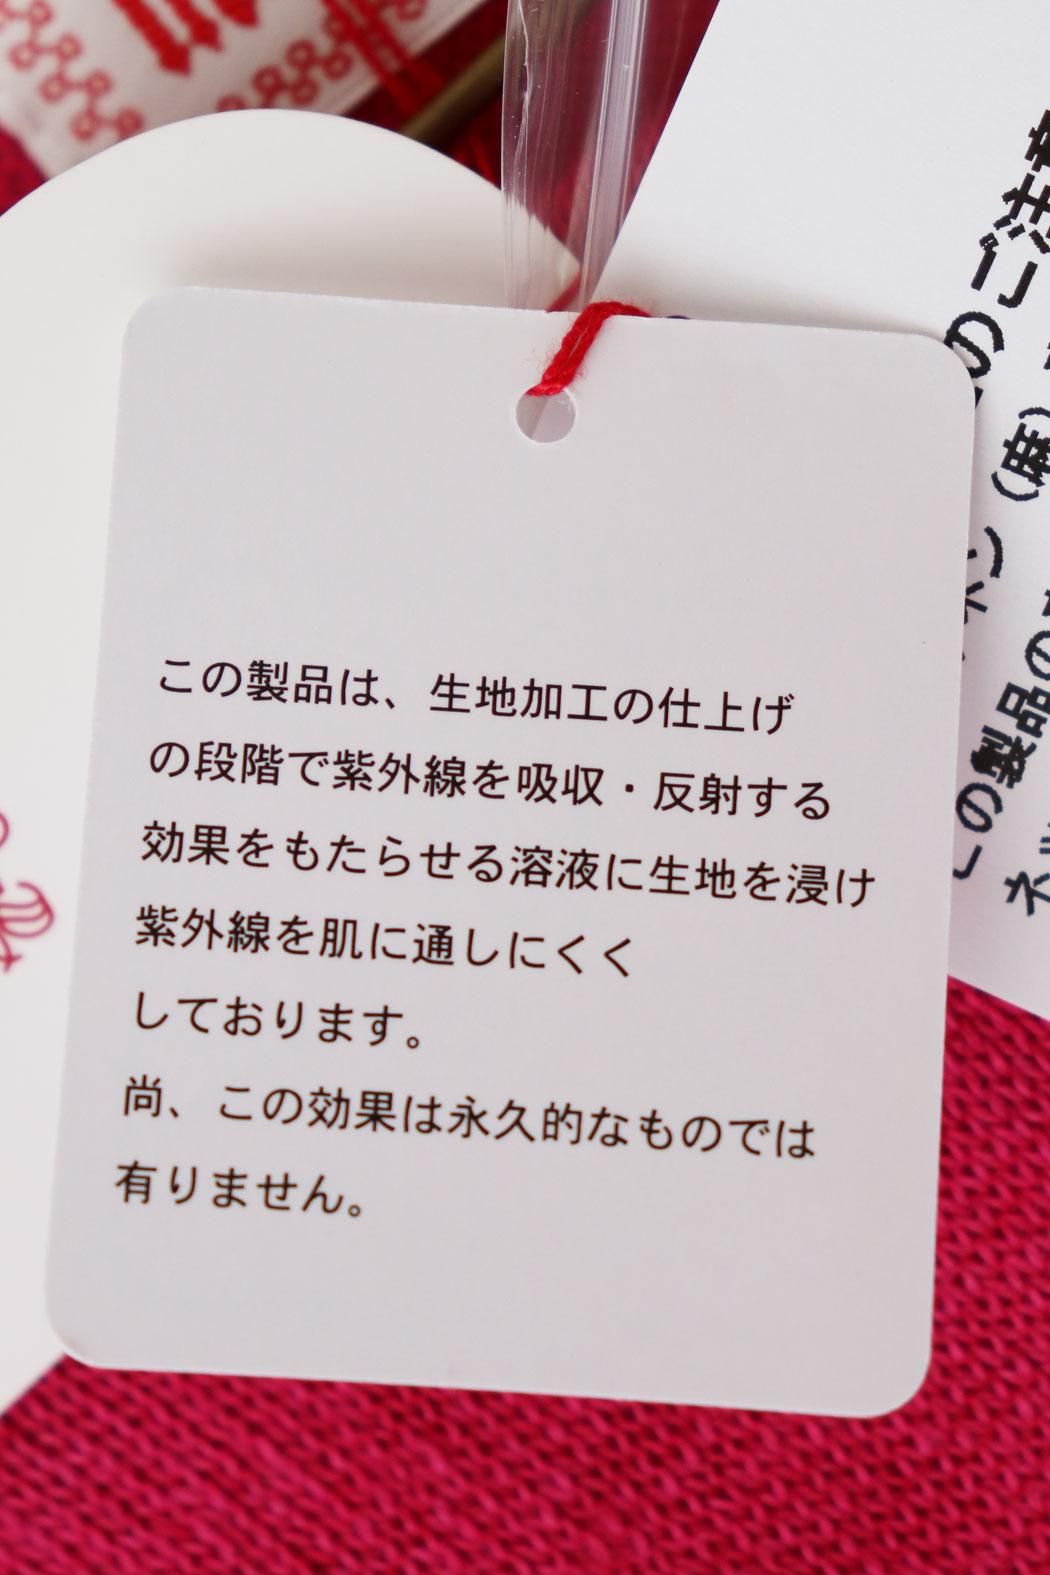 この製品は、生地加工の仕上げ
の段階で紫外線を吸収・反射する
効果をもたらせる溶液に生地を浸け
紫外線を肌に通しにくく
しております。
尚、この効果は永久的なものでは
有りません。
のご注意
ン（麻）
この製品の